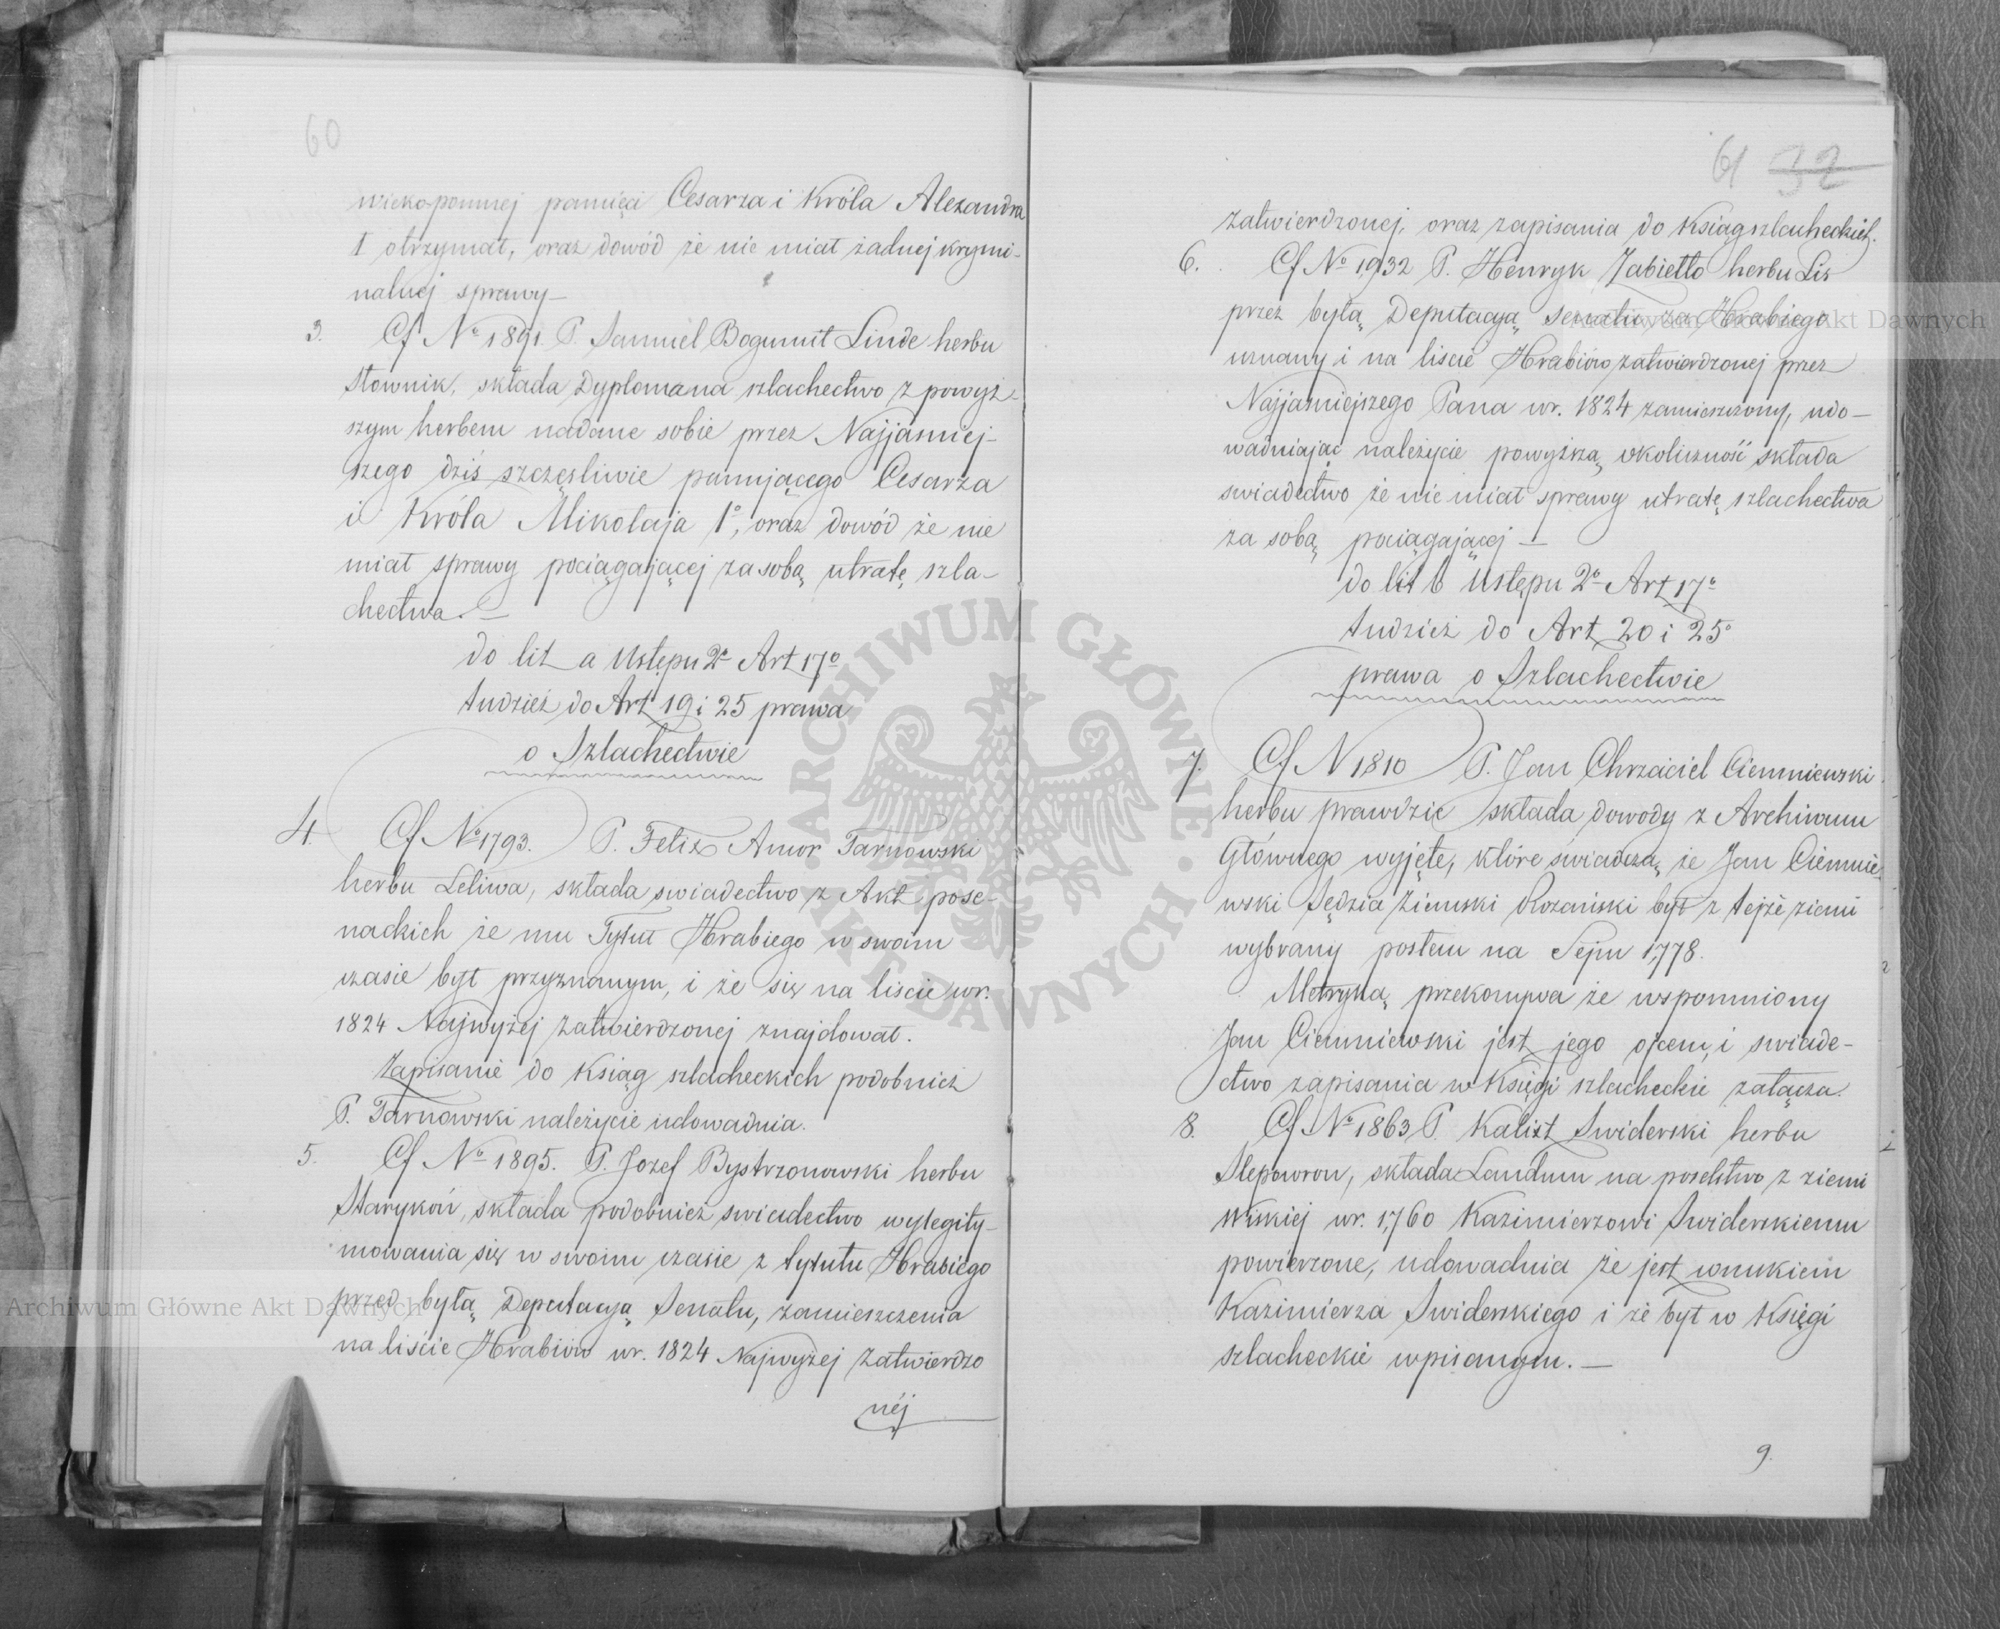 60
wieko-pomnej pamięci Cesarza i Króla Alexandra
I otrzymał, oraz dowód że nie miał żadnej krymi-
nalnej sprawy—
3. Cf Nº 1891. P. Samuel Bogumił Linde herbu
Słownik, składa Dyploma na szlachectwo z powyż-
szym herbem nadane sobie przez Najjaśniej-
szego dziś szczęśliwie panującego Cesarza
i Króla Mikołaja 1º, oraz dowód że nie
miał sprawy pociągającej za sobą utratę szla-
chectwa.—
do lit a Ustępu 2º Art 17º
tudzież do Art 19 i 25 prawa
o Szlachectwie
4. Cf Nº 1793. P. Felix Amor Tarnowski
herbu Leliwa, składa swiadectwo z Akt pose-
nackich że mu Tytuł Hrabiego w swoim
czasie był przyznanym, i że się na liscie wr.
1824 Najwyżej zatwierdzonej znajdował.
Zapisanie do Ksiąg szlacheckich podobnież
P. Tarnowski należycie udowadnia.
5. Cf Nº 1895. P. Jozef Bystrzonowski herbu
Starykoń, składa podobnież swiadectwo wylegity-
mowania się w swoim czasie z tytułu Hrabiego
przed byłą Deputacyą Senatu, zamieszczenia
na liście Hrabiów wr. 1824 Najwyżej zatwierdzo
néj
61 32
zatwierdzonej, oraz zapisania do Ksiąg szlacheckich.
6. Cf Nº 1932 P. Henryk Zabiełło herbu Lis
przez byłą Deputacyą senatu za Hrabiego
uznany i na liscie Hrabiów zatwierdzonej przez
Najjaśniejszego Pana wr. 1824 zamieszczony, udo-
wadniając należycie powyższą okoliczność składa
swiadectwo że nie miał sprawy utratę szlachectwa
za sobą pociągającej—
do lit b Ustępu 2º Art 17º
tudzież do Art 20 i 25º
prawa o Szlachectwie
7. Cf N 1810 P. Jan Chrzciciel Ciemniewski
herbu prawdzic składa dowody z Archiwum
Głównego wyjęte, które świadczą, że Jan Ciemnie
wski Sędzia Ziemski Rozański był z tejże ziemi
wybrany posłem na Sejm 1,778.
Metryką przekonywa że wspomniony
Jan Ciemniewski jest jego ojcem, i swiade-
ctwo zapisania w Księgi szlacheckie załącza.
8. Cf Nº 1863 P. Kalixt Swiderski herbu
Slepowron, składa Laudum na poselstwo z ziemi
Wiskiej wr. 1,760 Kazimierzowi Swiderskiemu
powierzone, udowadnia że jest wnukiem
Kazimierza Swiderskiego i że był w Księgi
szlacheckie wpisanym.—
9.
ARCHIWUM GŁÓWNE AKT DAWNYCH
Archiwum Główne Akt Dawnych
Archiwum Główne Akt Dawnych